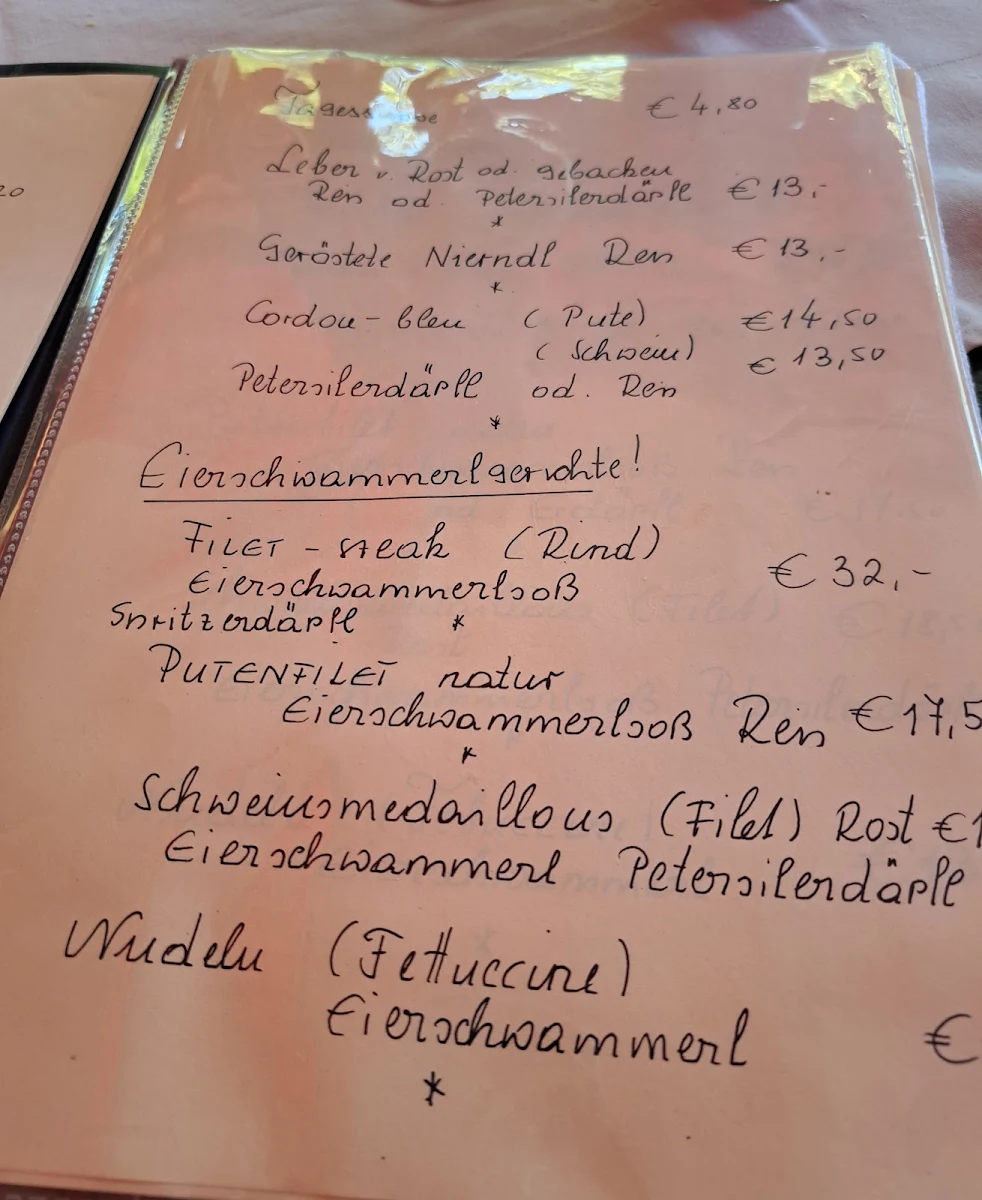 20
Tagessuppe € 4,80
Leber v. Rost od. gebacken
Reis od. Petersilerdäpfl € 13,-
*
Geröstete Nierndl Reis € 13,-
*
Cordon-bleu (Pute) € 14,50
(Schwein) € 13,50
Petersilerdäpfl od. Reis
*
Eierschwammerlgerichte!
FILET-steak (Rind)
Eierschwammerlsoß € 32,-
Spritzerdäpfl *
PUTENFILET natur
Eierschwammerlsoß Reis € 17,5
*
Schweinsmedaillons (Filet) Rost € 1
Eierschwammerl Petersilerdäpfl
Nudeln (Fettuccine)
Eierschwammerl €
*